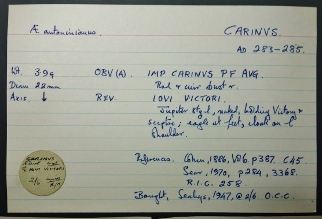 Æ antoninianus.
CARINVS.
AD 283-285.
Wt. 3.9g
OBV (A). IMP CARINVS PF AVG.
Diam 22mm
Rad & cuir bust r.
Axis. ↓
REV. IOVI VICTORI.
Jupiter stg l, naked, holding Victory &
sceptre; eagle at feet, cloak on l
shoulder.
References. Cohen, 1886, Vol 6. p387. C45
Sear, 1970, p284, 3368.
R.I.C. 258
Bought, Seabys, 1947, @ 2/6 O.C.C.
CARINUS
IOVI VICTORI
2/6